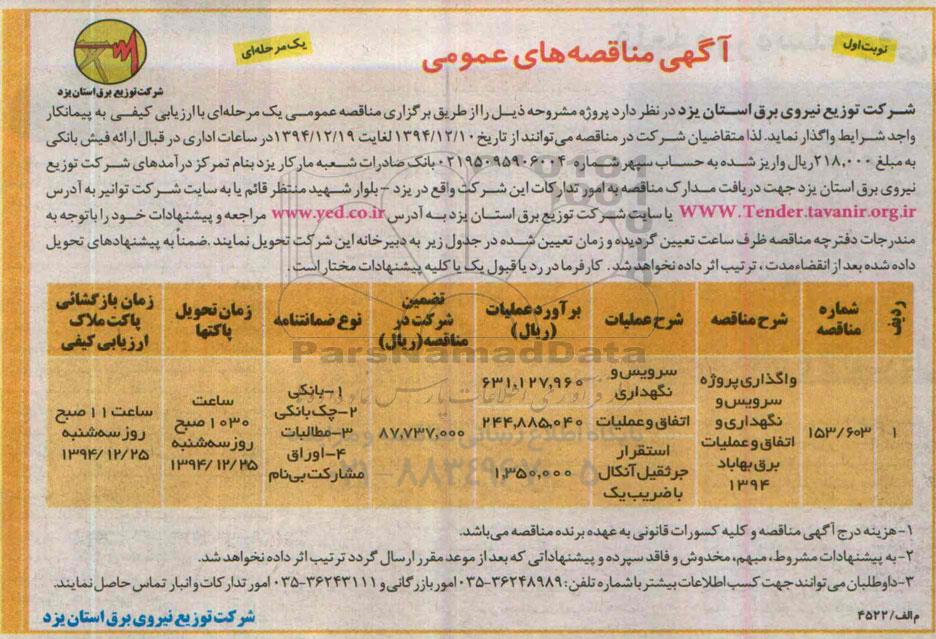 نوبت اول
آگهی مناقصه‌های عمومی
یک مرحله‌ای
شرکت توزیع برق استان یزد
شرکت توزیع نیروی برق استان یزد در نظر دارد پروژه مشروحه ذیل را از طریق برگزاری مناقصه عمومی یک مرحله‌ای با ارزیابی کیفی به پیمانکار
واجد شرایط واگذار نماید. لذا متقاضیان شرکت در مناقصه می‌توانند از تاریخ ۱۳۹۴/۱۲/۱۰ لغایت ۱۳۹۴/۱۲/۱۹ در ساعات اداری در قبال ارائه فیش بانکی
به مبلغ ۲۱۸,۰۰۰ ریال واریز شده به حساب سپهر شماره ۰۲۱۹۵۰۹۵۹۰۶۰۰۴ بانک صادرات شعبه مارکار یزد بنام تمرکز درآمدهای شرکت توزیع
نیروی برق استان یزد جهت دریافت مدارک مناقصه به امور تدارکات این شرکت واقع در یزد - بلوار شهید منتظر قائم یا به سایت شرکت توانیر به آدرس
WWW.Tender.tavanir.org.ir یا سایت شرکت توزیع برق استان یزد به آدرس www.yed.co.ir مراجعه و پیشنهادات خود را با توجه به
مندرجات دفترچه مناقصه ظرف ساعت تعیین گردیده و زمان تعیین شده در جدول زیر به دبیرخانه این شرکت تحویل نمایند. ضمناً به پیشنهادهای تحویل
داده شده بعد از انقضاء مدت، ترتیب اثر داده نخواهد شد. کارفرما در رد یا قبول یک یا کلیه پیشنهادات مختار است.
ردیف
شماره مناقصه
شرح مناقصه
شرح عملیات
برآورد عملیات (ریال)
تضمین شرکت در مناقصه (ریال)
نوع ضمانتنامه
زمان تحویل پاکتها
زمان بازگشائی پاکت ملاک ارزیابی کیفی
۱
۱۵۳/۶۰۳
واگذاری پروژه
سرویس و
نگهداری و
اتفاق و عملیات
برق بهاباد
۱۳۹۴
سرویس و نگهداری
۶۳۱,۱۲۷,۹۶۰
اتفاق و عملیات
۲۴۴,۸۸۵,۰۴۰
استقرار
جرثقیل آنکال
با ضریب یک
۱,۳۵۰,۰۰۰
۸۷,۷۳۷,۰۰۰
۱-بانکی
۲-چک بانکی
۳-مطالبات
۴-اوراق
مشارکت بی‌نام
ساعت
۱۰:۳۰ صبح
روز سه‌شنبه
۱۳۹۴/۱۲/۲۵
ساعت ۱۱ صبح
روز سه‌شنبه
۱۳۹۴/۱۲/۲۵
ParsNamadData
۱-هزینه درج آگهی مناقصه و کلیه کسورات قانونی به عهده برنده مناقصه می‌باشد.
۲-به پیشنهادات مشروط، مبهم، مخدوش و فاقد سپرده و پیشنهاداتی که بعد از موعد مقرر ارسال گردد ترتیب اثر داده نخواهد شد.
۳-داوطلبان می‌توانند جهت کسب اطلاعات بیشتر با شماره تلفن: ۳۶۲۴۸۹۸۹-۰۳۵ امور بازرگانی و ۳۶۲۴۳۱۱۱-۰۳۵ امور تدارکات و انبار تماس حاصل نمایند.
م الف/۴۵۲۲
شرکت توزیع نیروی برق استان یزد